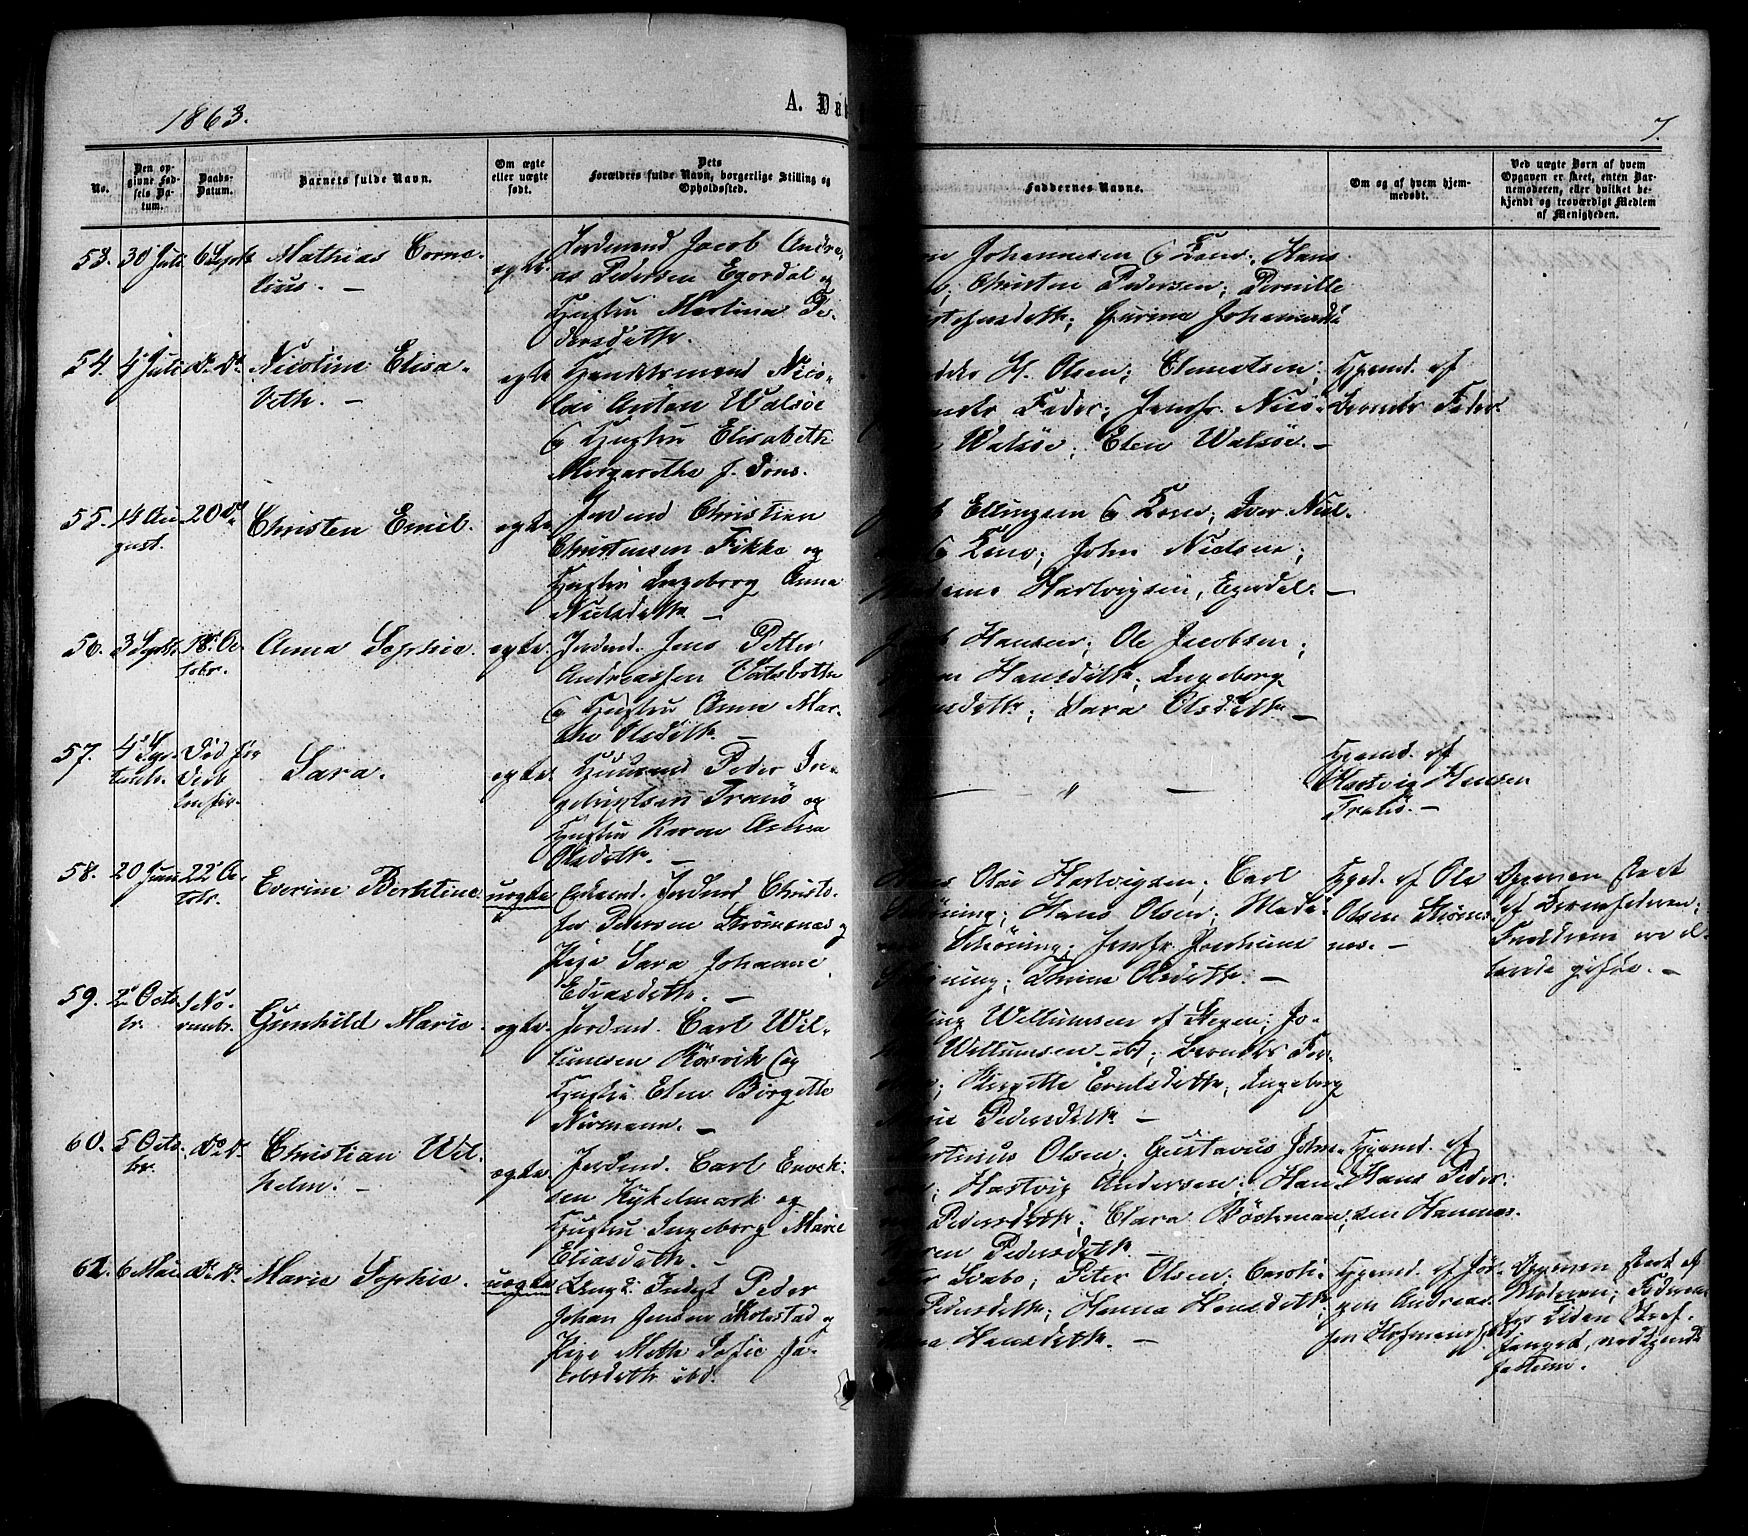 1863.
A. Døb
7.
No.
Den op-
givne Fød-
sels Da-
tum.
Daabs-
Datum.
Barnets fulde Navn.
Om ægte
eller uægte
født.
Dets
Forældres fulde Navn, borgerlige Stilling og
Opholdssted.
Faddernes Navne.
Om og af hvem hjem-
medøbt.
Ved uægte Børn af hvem
Opgaven er skeet, enten Bar-
nemoderen, eller hvilket be-
kjendt og troværdigt Medlem
af Menigheden.
53. 30 Juli 6 Septb Mathias Corne-
lius. —
ægte.
Jordmand Jacob Andre-
as Pedersen Egordal og
Hustru Martina Pe-
dersdttr.
Johannesen & Kone; Hans
Christen Pedersen; Pernille
Gurina Johannesd
54. 4 Juli Do Do Nicoline Elisa-
beth. —
ægte
Handelsmand Nico-
lai Anton Walsöe
& Hustru Elisabeth
Margarethe f. Dons.
H. Olsen; Clemetsen;
Fader; Jomfr. Nico-
Walsöe; Elen Walsöe. —
Hjemd. af
Barnets Fader.
55. 14 Au-
gust. 20 Do Christen Emil.
ægte.
Jordmd Christian
Christensen Fikke og
Hustru Ingeborg Anna
Nielsdttr. —
Ellingsen & Kone; Iver Niel-
& Kone; John Nielsen;
Hartvigsen, Egordal. —
56. 3 Septbr. 18 Oc-
tobr. Anna Sophie.
ægte.
Jordmd. Jens Petter
Andreassen Vatsbotten
& Hustru Anna Mar-
the Olsdttr. —
Hansen; Ole Jacobsen;
Hansdttr; Ingeborg
Sara Olsdttr. —
57. 4 Sep-
tembr. Død før
Sara.
ægte.
Huusmd Peder In-
gebrigtsen Tranö og
Hustru Karen Anna
Olsdttr. —
— " —
Hjemd. af
Hartvig Hansen
Tranö. —
58. 20 Juni 22 Oc-
tobr. Everine Berntine
uægte
Enkemd. Jordmd Christo-
fer Pedersen Strömsnæs og
Pige Sara Johanne
Ediasdttr. —
Olai Hartvigsen; Carl
Schöning; Hans Olsen; Mada-
Schöning; Jomfr. Josephine
Trina Olsdttr. —
Hjmd. af Ole
Olsen Ström-
næs. —
Opgaven skeet
af Barnefaderen;
Forældrene ere al-
lerede gifte. —
59. 2 Octo-
br. 1 No-
vembr. Gunhild Marie.
ægte.
Jordmd. Carl Wil-
lumsen Kösvik og
Hustru Elen Birgitte
Normann. —
Willumsen af Stegen; Jo-
Willumsen ibd; Berntes Fa-
Birgitte Ericksdttr; Ingeborg
Marie Pedersdttr. —
60. 5 Octo-
br. Do Do Christian Wil-
helm. —
ægte
Jordmd. Carl Enock-
sen Kykelmark og
Hustru Ingeborg Marie
Eliasdttr. —
Olsen; Gustavus John-
Hartvig Andersen; Han-
Pedersdttr; Clara Böckman;
Pedersdttr. —
Hjemd. af
Hans Peder-
sen Hannes.
61. 6 Mai Do Do Marie Sophie.
uægte
Ungk. Inderst Peder
Johan Jensen Skotstad og
Pige Meth Sofie Ja-
kobsdttr ibd.
Svabo; Peter Olsen; Caroli-
Pedersdttr; Hanna Hansdttr;
Hansdttr. —
Hjemd. af Jör-
gen Andreas-
sen
Opgaven skeet af
Moderen; Faderen